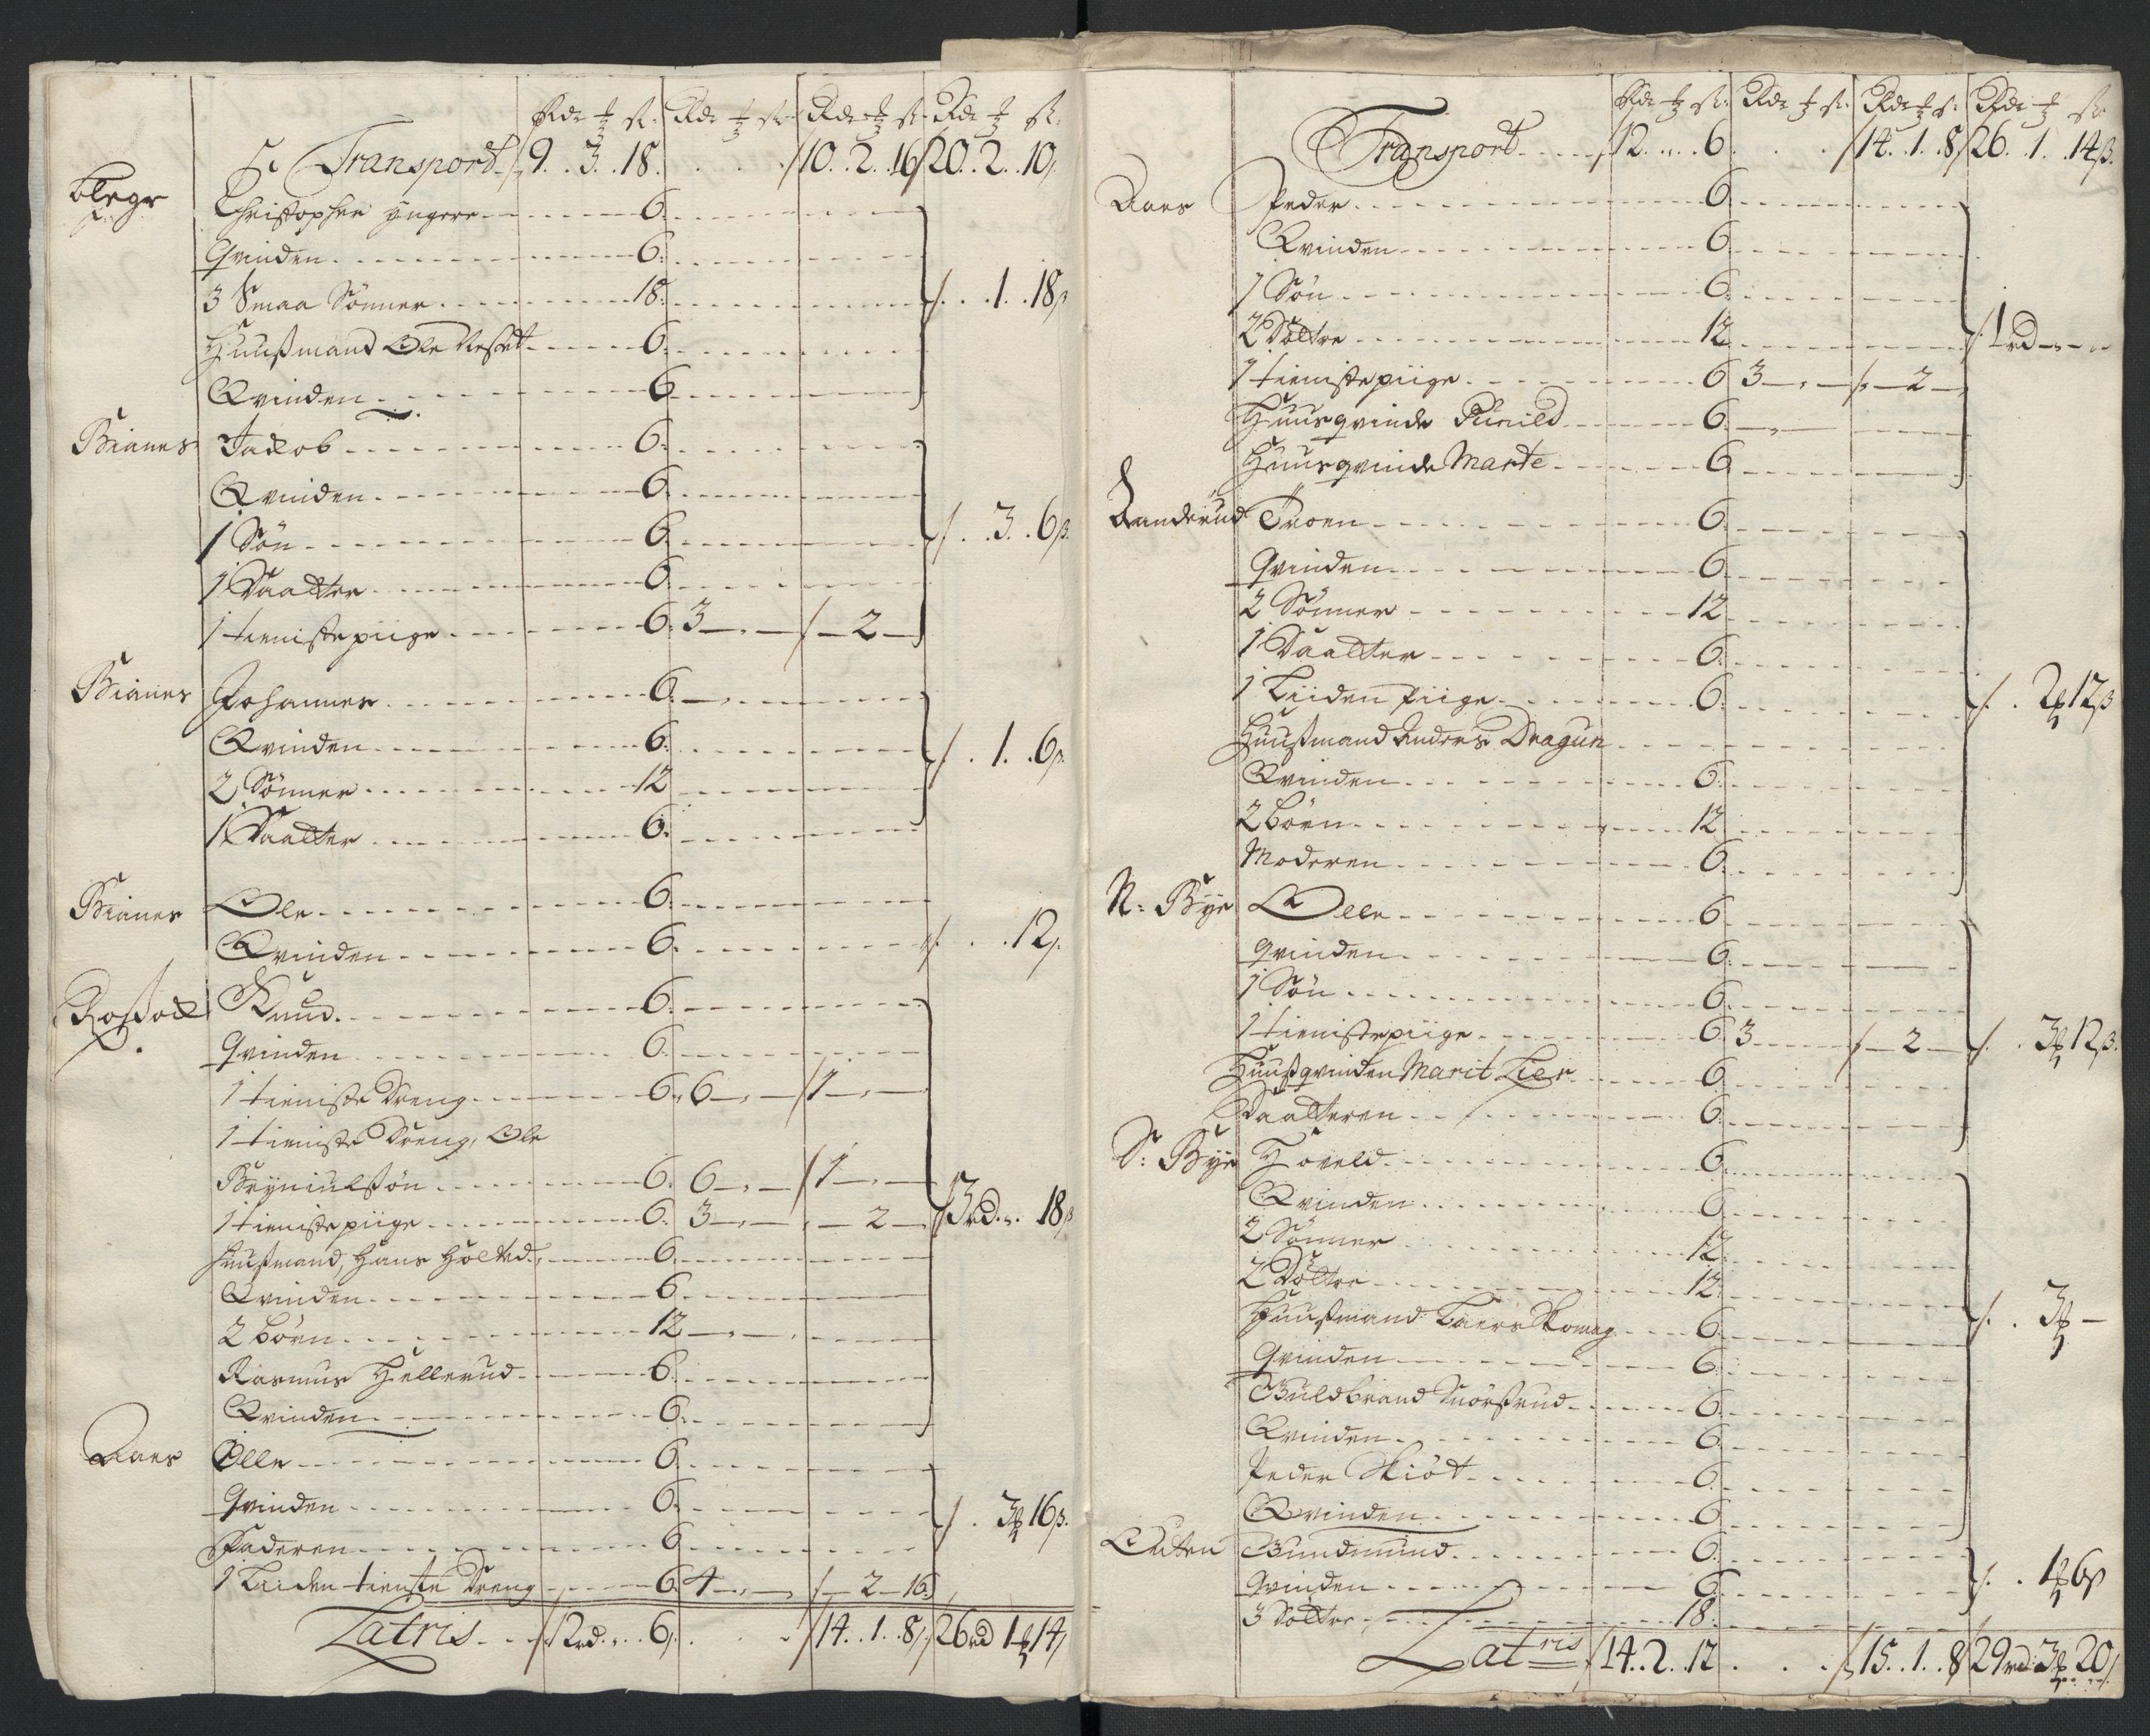 Rdr ƶ ß: Rdr ƶ ß: Rdr ƶ ß: Rdr ƶ ß:
Transport 9..3..18. 10..2..16 20..2..10
Christopher yngere 6
Qvinden 6
3 Smaa Sønner 18 1..18ß
Huusmand Ole 6
Qvinden 6
Bianes Jacob 6
Qvinden 6
1 Søn 6 3..6ß
1 Daatter 6
1 tienistepiige 6 3 2
Bianes Johannes 6
Qvinden 6 1..6ß
2 Sønner 12
1 Daatter 6
Bianes Ole 6
Qvinden 6 12
Knud 6
Qvinden 6
1 tieniste Dreng 6 6 1
1 tieniste Dreng, Ole
Bryniulsøn 6 6 1
1 tienistepiige 6 3 2 3rd 18ß
Huusmand, Hans 6
Qvinden 6
2 børn 12
Rasmus Hellerud 6
Qvinden 6
Aaes Olle 6
Qvinden 6 3 16ß
Faderen 6
1 Liiden tieniste Dreng 6 4 2 16
Latris 12rd 6 14..1..8 26rd 1 14
Rdr ƶ ß: Rdr ƶ ß: Rdr ƶ ß: Rdr ƶ ß
Transport 12 6 14..1..8 26..1..14ß
Aaes Peder 6
Qvinden 6
1 Søn 6
2 Døttre 12 1rd
1 tienistepiige 6 3 2
Huusqvinde Gunild 6
Huusqvinde Marte 6
Randerud Troen 6
Qvinden 6
2 Sønner 12
1 Daatter 6
1 Liiden piige 6 2 12ß
Huusmand Anders Dragun
Qvinden 6
2 børn 12
Moderen 6
N: Bye Olle 6
qvinden 6
1 Søn 6
1 tienistepiige 6 3 2 3 12ß
Huusqvinden Marit Lier 6
Daatteren 6
S: Bye 6
Qvinden 6
2 Sønner 12
2 Døttre 12
Huusmand Laers 6 3
Qvinden 6
Guldbrand 6
Qvinden 6
Peder 6
Qvinden 6
Gundmund 6
Qvinden 6 1 6ß
3 Døttre 18
Latris 14..2..12 15..1..8 29rd 3 20